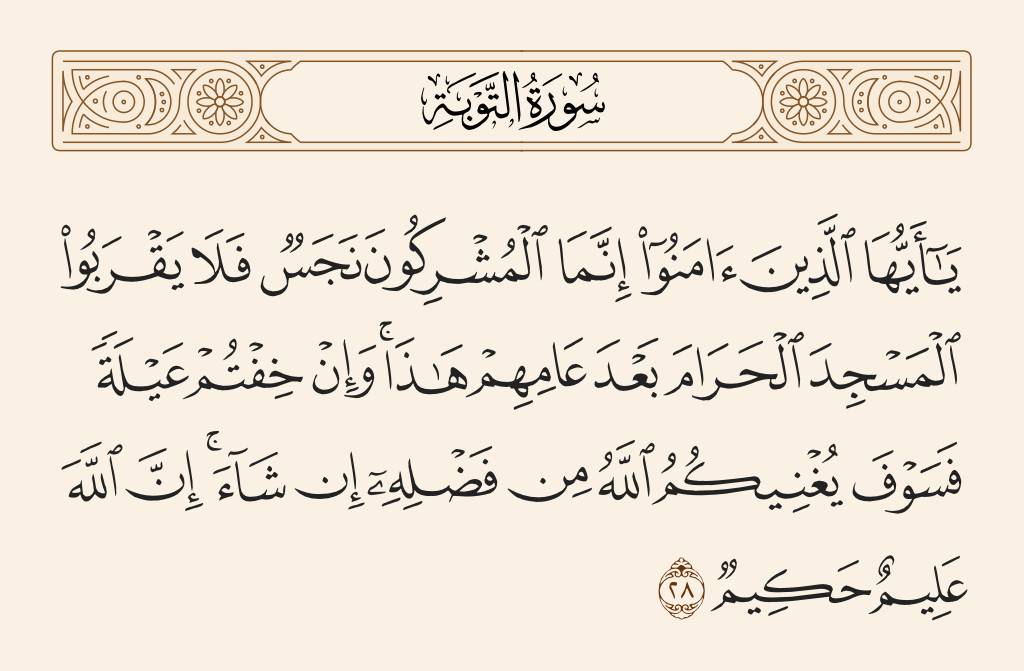 سُورَةُ التَّوْبَةِ
يَـٰٓأَيُّهَا ٱلَّذِينَ ءَامَنُوٓا۟ إِنَّمَا ٱلْمُشْرِكُونَ نَجَسٌ فَلَا يَقْرَبُوا۟
ٱلْمَسْجِدَ ٱلْحَرَامَ بَعْدَ عَامِهِمْ هَـٰذَا ۚ وَإِنْ خِفْتُمْ عَيْلَةً
فَسَوْفَ يُغْنِيكُمُ ٱللَّهُ مِن فَضْلِهِۦٓ إِن شَآءَ ۚ إِنَّ ٱللَّهَ
عَلِيمٌ حَكِيمٌ ٢٨